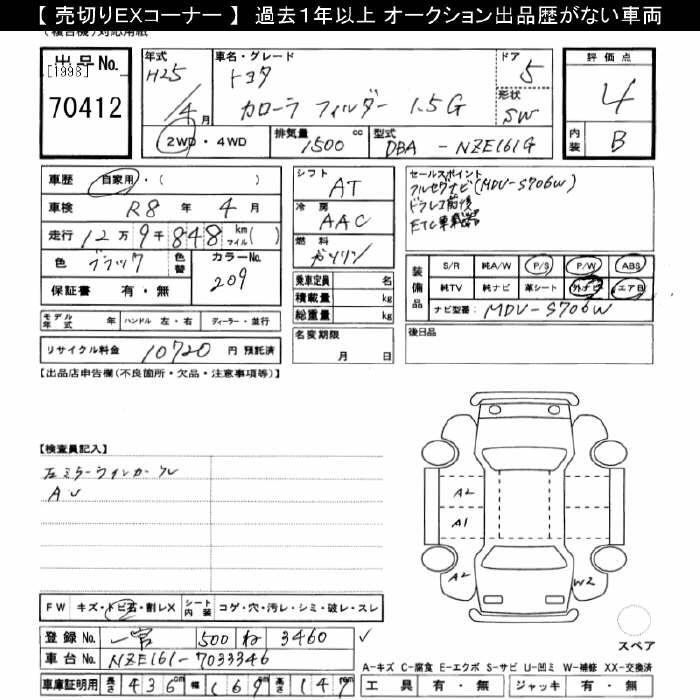 【 売切りEXコーナー 】 過去1年以上 オークション出品歴がない車両
出品No.
[1998]
70412
年式 H25 / 4月
車名・グレード トヨタ
カローラ フィルダー 1.5G
ドア 5
形状 SW
2WD・4WD
排気量 1500 cc
型式 DBA - NZE161G
評価点 4
内装 B
車歴 自家用・( )
車検 R8 年 4 月
走行 12万 9千 848 km マイル( )
色 ブラック 色替 カラーNo. 209
保証書 有・無
シフト AT
冷房 AAC
燃料 ガソリン
乗車定員 名
積載量 kg
総重量 kg
セールスポイント
フルセグナビ(MDV-S706W)
ドラレコ前後
ETC車載器
装備品
S/R 純A/W P/S P/W ABS
純TV 純ナビ 革シート 外ナビ エアB
ナビ型番: MDV-S706W
モデル年式 年 ハンドル 左・右 ディーラー・並行
リサイクル料金 10720 円 預託済
名変期限 月 日
後日品
【出品店申告欄(不良箇所・欠品・注意事項等)】
【検査員記入】
左ミラーウィンカーワレ
AU
A2
A1
A2
W2
スペア
FW キズ・トビ石・割レX シート内装 コゲ・穴・汚レ・シミ・破レ・スレ
登録No. 一宮 500 ね 3460
車台No. NZE161-7033346
車庫証明用 長さ 436cm 幅 169cm 高さ 147cm
A-キズ C-腐食 E-エクボ S-サビ U-凹ミ W-補修 XX-交換済
工具 有・無 ジャッキ 有・無